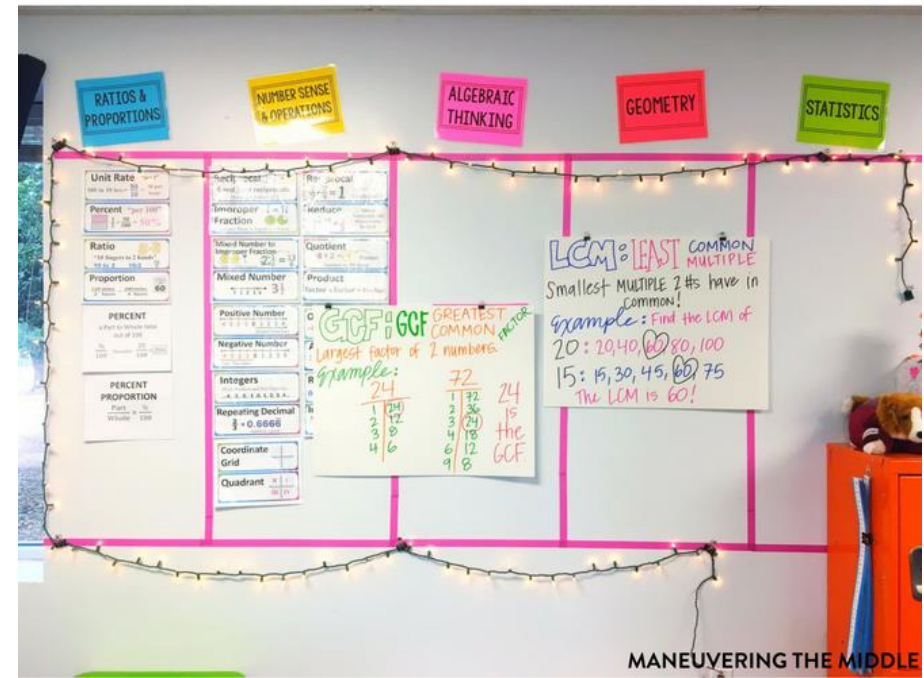 RATIOS &
PROPORTIONS
NUMBER SENSE
& OPERATIONS
ALGEBRAIC
THINKING
GEOMETRY
STATISTICS
Unit Rate
Percent "per 100"
= 50%
Ratio
"10 fingers to 2 hands"
Proportion
60
PERCENT
a Part to Whole ratio
out of 100
PERCENT
PROPORTION
Part = %
Whole 100
Improper
Fraction
Mixed Number to
Improper Fraction
Mixed Number
Positive Number
Negative Number
Integers
Repeating Decimal
2/3 = 0.6666
Coordinate
Grid
Quadrant
= 1
Reduce
Quotient
Product
GCF: GCF GREATEST
COMMON FACTOR
Largest factor of 2 numbers.
Example:
24
1 24
2 12
3 8
4 6
72
1 72
2 36
3 24
4 18
6 12
9 8
24
is
the
GCF.
LCM: LEAST COMMON
MULTIPLE
Smallest MULTIPLE 2 #s have in
common!
Example: Find the LCM of
20: 20, 40, 60, 80, 100
15: 15, 30, 45, 60, 75
The LCM is 60!
MANEUVERING THE MIDDLE